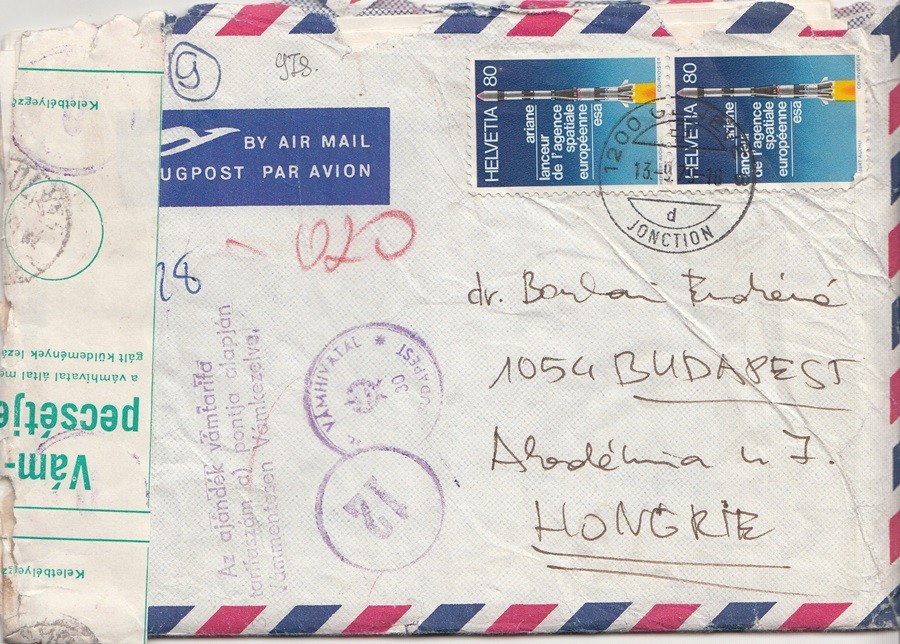 9
978.
BY AIR MAIL
UGPOST PAR AVION
HELVETIA 80
ariane
lanceur
de l'agence
spatiale
européenne
esa
HELVETIA 80
ariane
lanceur
de l'agence
spatiale
européenne
esa
1200
13.-9
d
JONCTION
28
020
dr.
1054 BUDAPEST
Akadémia u 7.
HONGRIE
Az ajándék vámtarifa
pontja alapján
Vámmentesen Vámkezelve.
VÁMHIVATAL * 30
BUDAPEST
12
Keletbélyegz
Vám-
pecsétje
a vámhivatal által me
gált küldemények lezá
Keletbélyegz